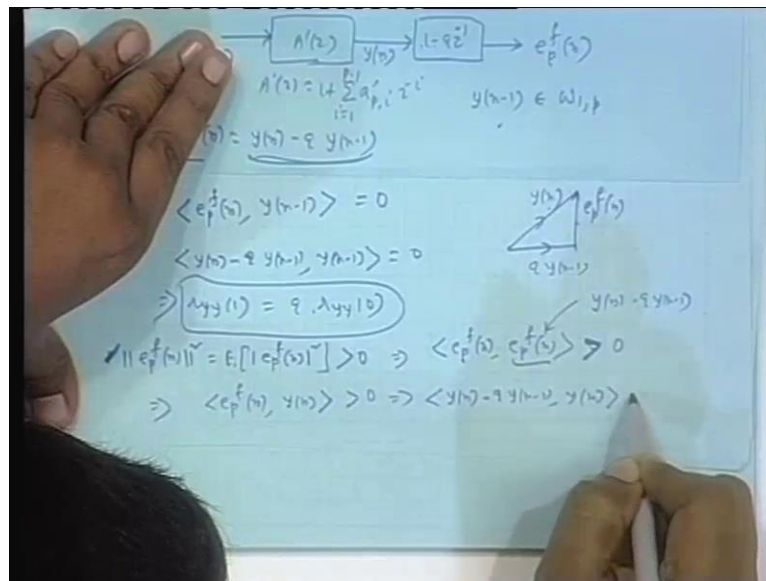 A'(z) y(n) 1-qz⁻¹ e_p^f(n)
A'(z) = 1+ Σ_{i=1}^{p-1} a'_{p,i} z^{-i} y(n-1) ∈ W_{1,p}
(n) = y(n) - q y(n-1)
<e_p^f(n), y(n-1)> = 0 y(n) e_p^f(n)
<y(n) - q y(n-1), y(n-1)> = 0 q y(n-1)
⇒ r_yy(1) = q . r_yy(0) y(n) - q y(n-1)
||e_p^f(n)||² = E[|e_p^f(n)|²] > 0 ⇒ <e_p^f(n), e_p^f(n)> > 0
⇒ <e_p^f(n), y(n)> > 0 ⇒ <y(n) - q y(n-1), y(n)>